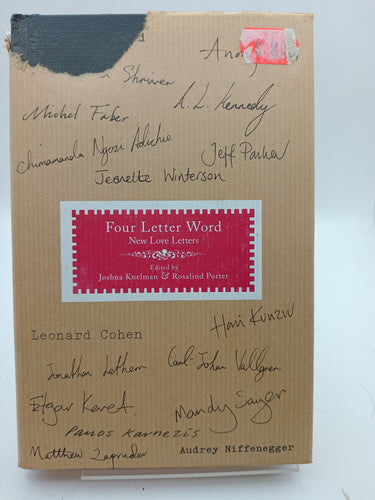 Shriver
Michel Faber
A.L. Kennedy
Chimamanda Ngozi Adichie
Jeff Parker
Jeanette Winterson
Four Letter Word
New Love Letters
Edited by
Joshua Knelman & Rosalind Porter
Hari Kunzru
Leonard Cohen
Jonathan Lethem
Carl-Johan Vallgren
Etgar Keret
Mandy Sayer
Panos Karnezis
Matthew Zapruder
Audrey Niffenegger